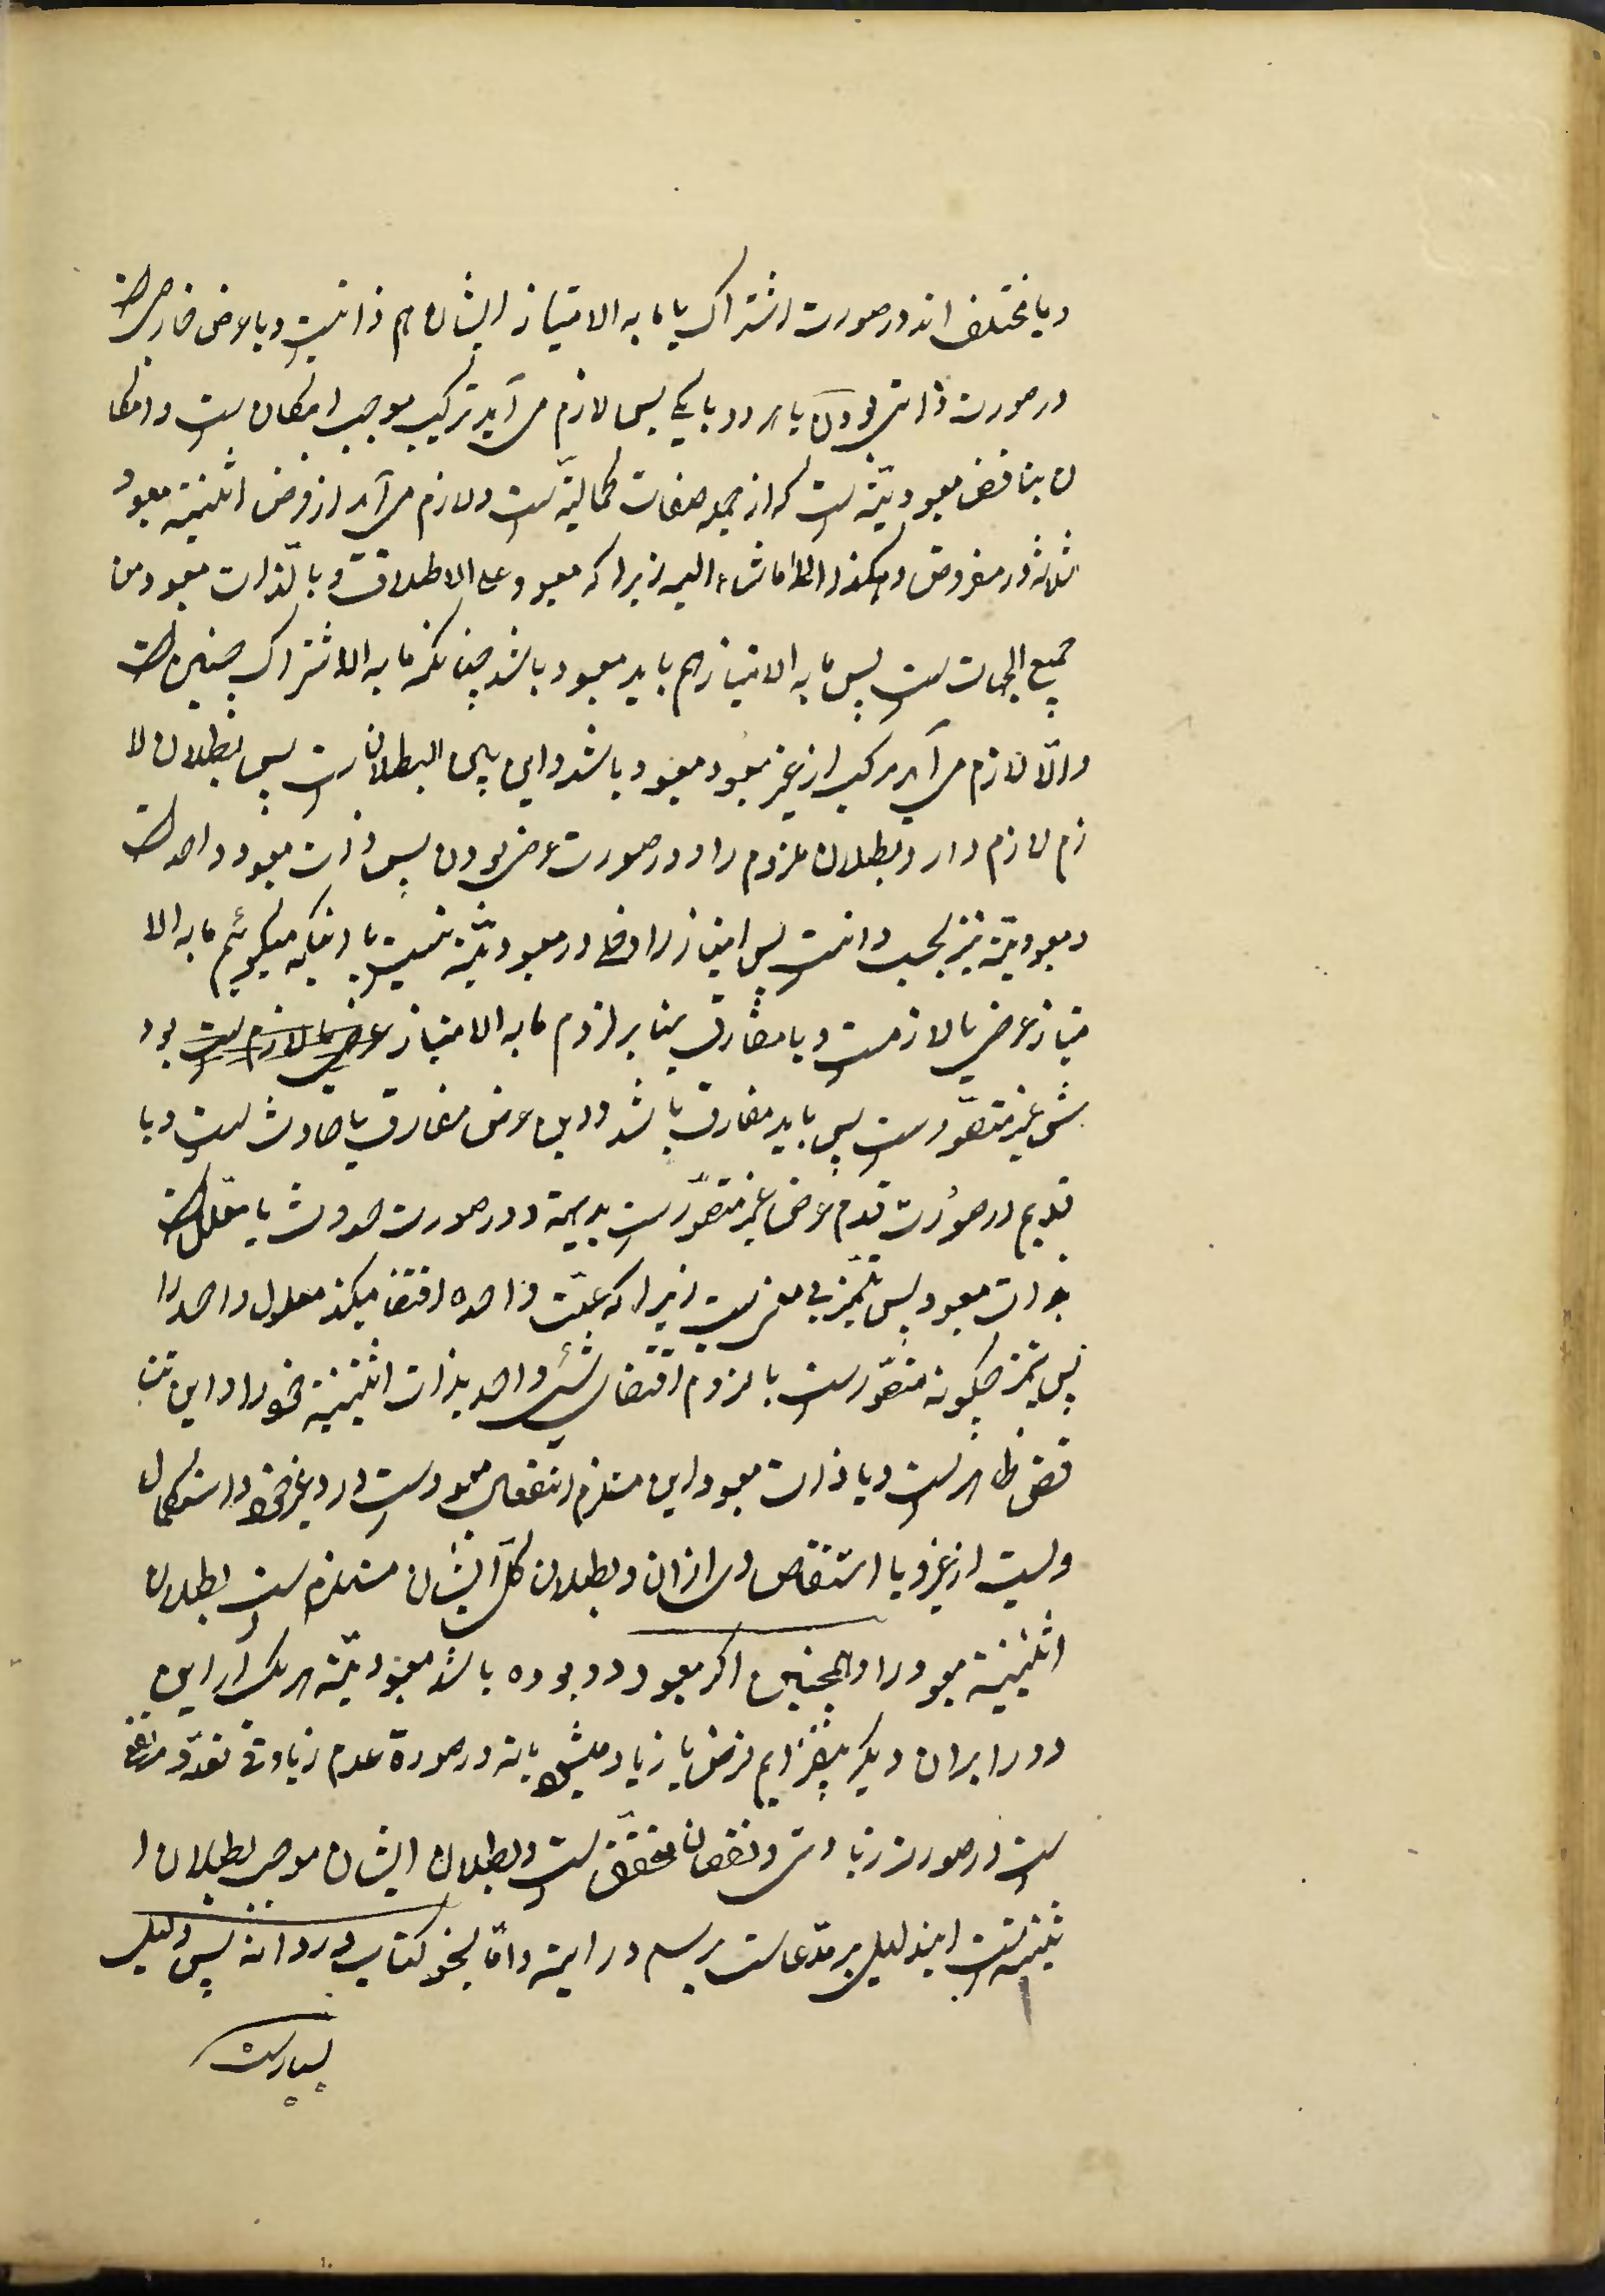 و یا مختلف اند در صورت اشتراک یا ما به الامتیاز ایشان هم ذاتیست و یا عرض خارجی است
در صورت ذاتی بودن یا هر دو یا یکی پس لازم می آید ترکیب موجب امکان است و امکا
ن مناقض معبودیّته است که از جمله صفات کمالیّه است و لازم می آید از فرض اثنینیة معبود
ثلاثه در مفروض و هکذا الی ما شاء الیه زیرا که معبود علی الاطلاق و بالذات معبود من
جمیع الجهات است پس ما به الامتیاز هم باید معبود باشد چنانکه ما به الاشتراک چنین است
و الّا لازم می آید مرکب از غیر معبود معبود باشد و این بدیهی البطلان است پس بطلان لا
زم لازم دارد بطلان ملزوم را و در صورت عرض بودن پس ذات معبود واحد است
و معبودیّته نیز بحسب ذاتست پس امتیاز را دخلی در معبودیّته نیست با اینکه میگوئیم ما به الا
متیاز عرضی یا لازمست و یا مفارق بنابر لزوم ما به الامتیاز عرضی یا لازم است بود
ش غیر متصوّر است پس باید مفارق باشد و این عرض مفارق یا حادث است و یا
قدیم در صورت قدم عرض غیر متصوّر است بدیهة و در صورت حدوث یا معلل است
بذات معبود پس تمیّز بی معنی است زیرا که علّت واحده اقتضا میکند معلول واحد را
پس تمیّز چگونه متصوّر است با لزوم اقتضای شئ واحد بذات اثنینیة خود را و این تنا
قض ظاهر است و یا ذات معبود این مستلزم انفعال معبود است از غیر خود و استکمال
ولیست از غیر و یا استنقاص وی از ان و بطلان کل ایشان مستلزم است بطلان
اثنینیة معبود را و همچنین اگر معبود دو بوده باشد معبودیّته هر یک از این
دو را بر ان دیگر بیفزایم فرضی یا زیاد میشود یا نه در صورة عدم زیادتی تعدّد مرتفع
است در صورت زیادتی و نقصان محقّق است و بطلان ایشان موجب بطلان ا
ثنینیة است ایندلیل بر مدّعاست برسم درایته و امّا بنحو کتاب و روایة پس دلیل
بسیار است